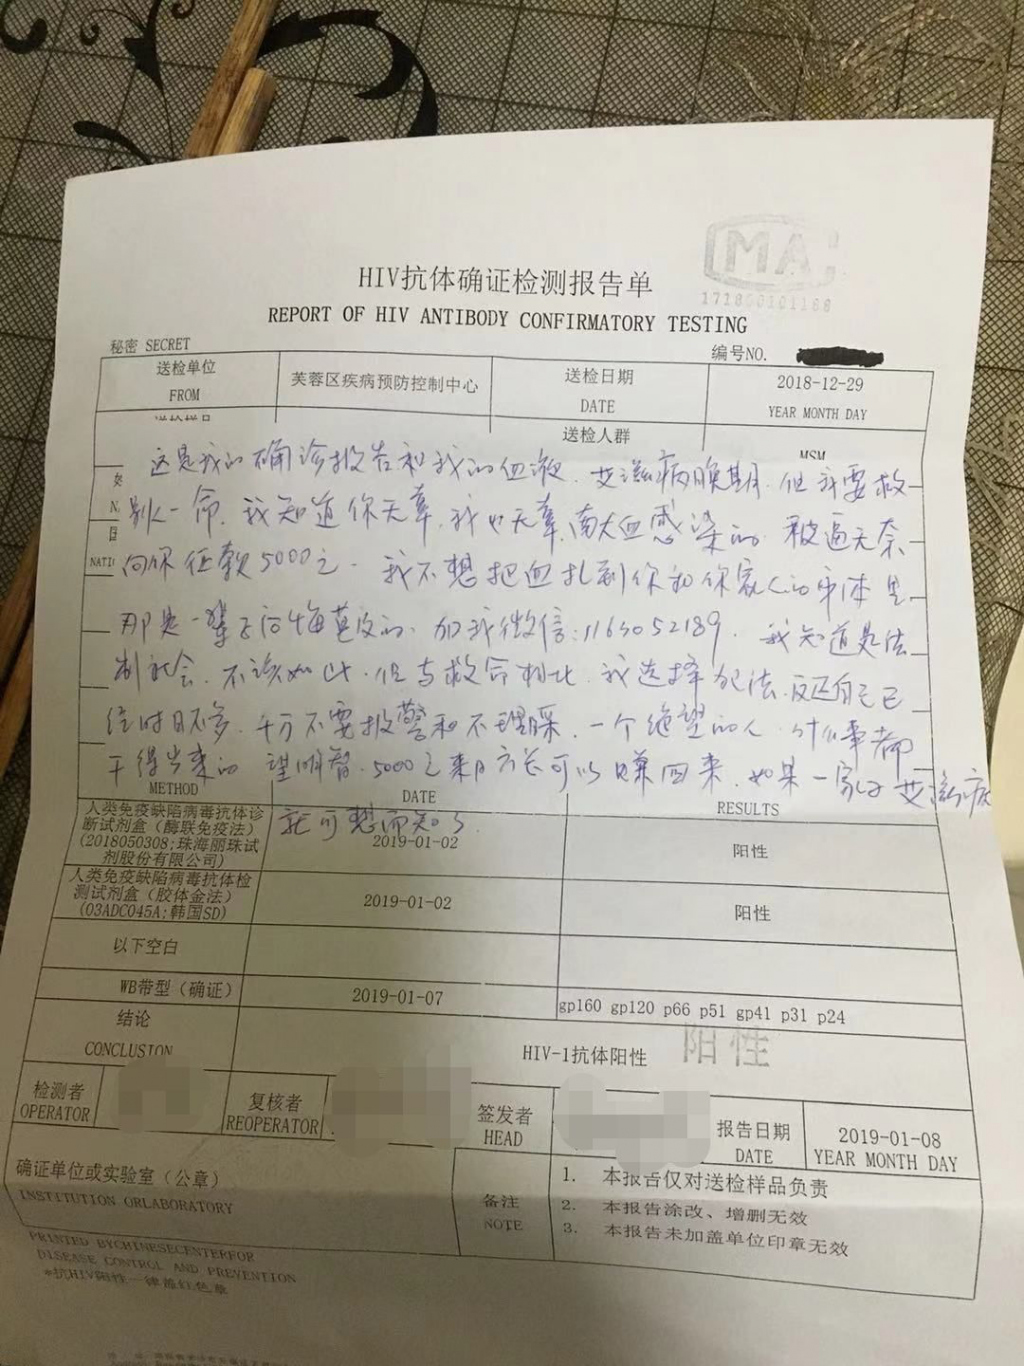 MA
171800101188
HIV抗体确证检测报告单
REPORT OF HIV ANTIBODY CONFIRMATORY TESTING
秘密 SECRET
编号NO.
送检单位 FROM
芙蓉区疾病预防控制中心
送检日期 DATE
2018-12-29
YEAR MONTH DAY
送检人群
MSM
这是我的确诊报告和我的血液.艾滋病晚期.但我要救
别人一命.我知道你无辜,我也无辜,卖血感染的.被逼无奈
向你征款5000元.我不想把血扎到你和你家人的身体里
那是一辈子后悔莫及的.加我微信:1163052189.我知道是法
制社会.不该如此.但与救命相比.我选择犯法.反正自己已
经时日不多.千万不要报警和不理睬.一个绝望的人.什么事都
干得出来的 望明智.5000元来日方长可以赚回来.如果一家子艾滋病
就可想而知了.
NATI
METHOD
DATE
RESULTS
人类免疫缺陷病毒抗体诊断试剂盒（酶联免疫法）(2018050308;珠海丽珠试剂股份有限公司)
2019-01-02
阳性
人类免疫缺陷病毒抗体检测试剂盒（胶体金法）(03ADC045A;韩国SD)
2019-01-02
阳性
以下空白
WB带型（确证）
2019-01-07
gp160 gp120 p66 p51 gp41 p31 p24
结论 CONCLUSION
HIV-1抗体阳性
阳性
检测者 OPERATOR
复核者 REOPERATOR
签发者 HEAD
报告日期 DATE
2019-01-08
YEAR MONTH DAY
确证单位或实验室（公章）
INSTITUTION ORLABORATORY
备注 NOTE
1. 本报告仅对送检样品负责
2. 本报告涂改、增删无效
3. 本报告未加盖单位印章无效
PRINTED BYCHINESECENTERFOR
DISEASE CONTROL AND PREVENTION
*抗HIV阳性一律盖红色章